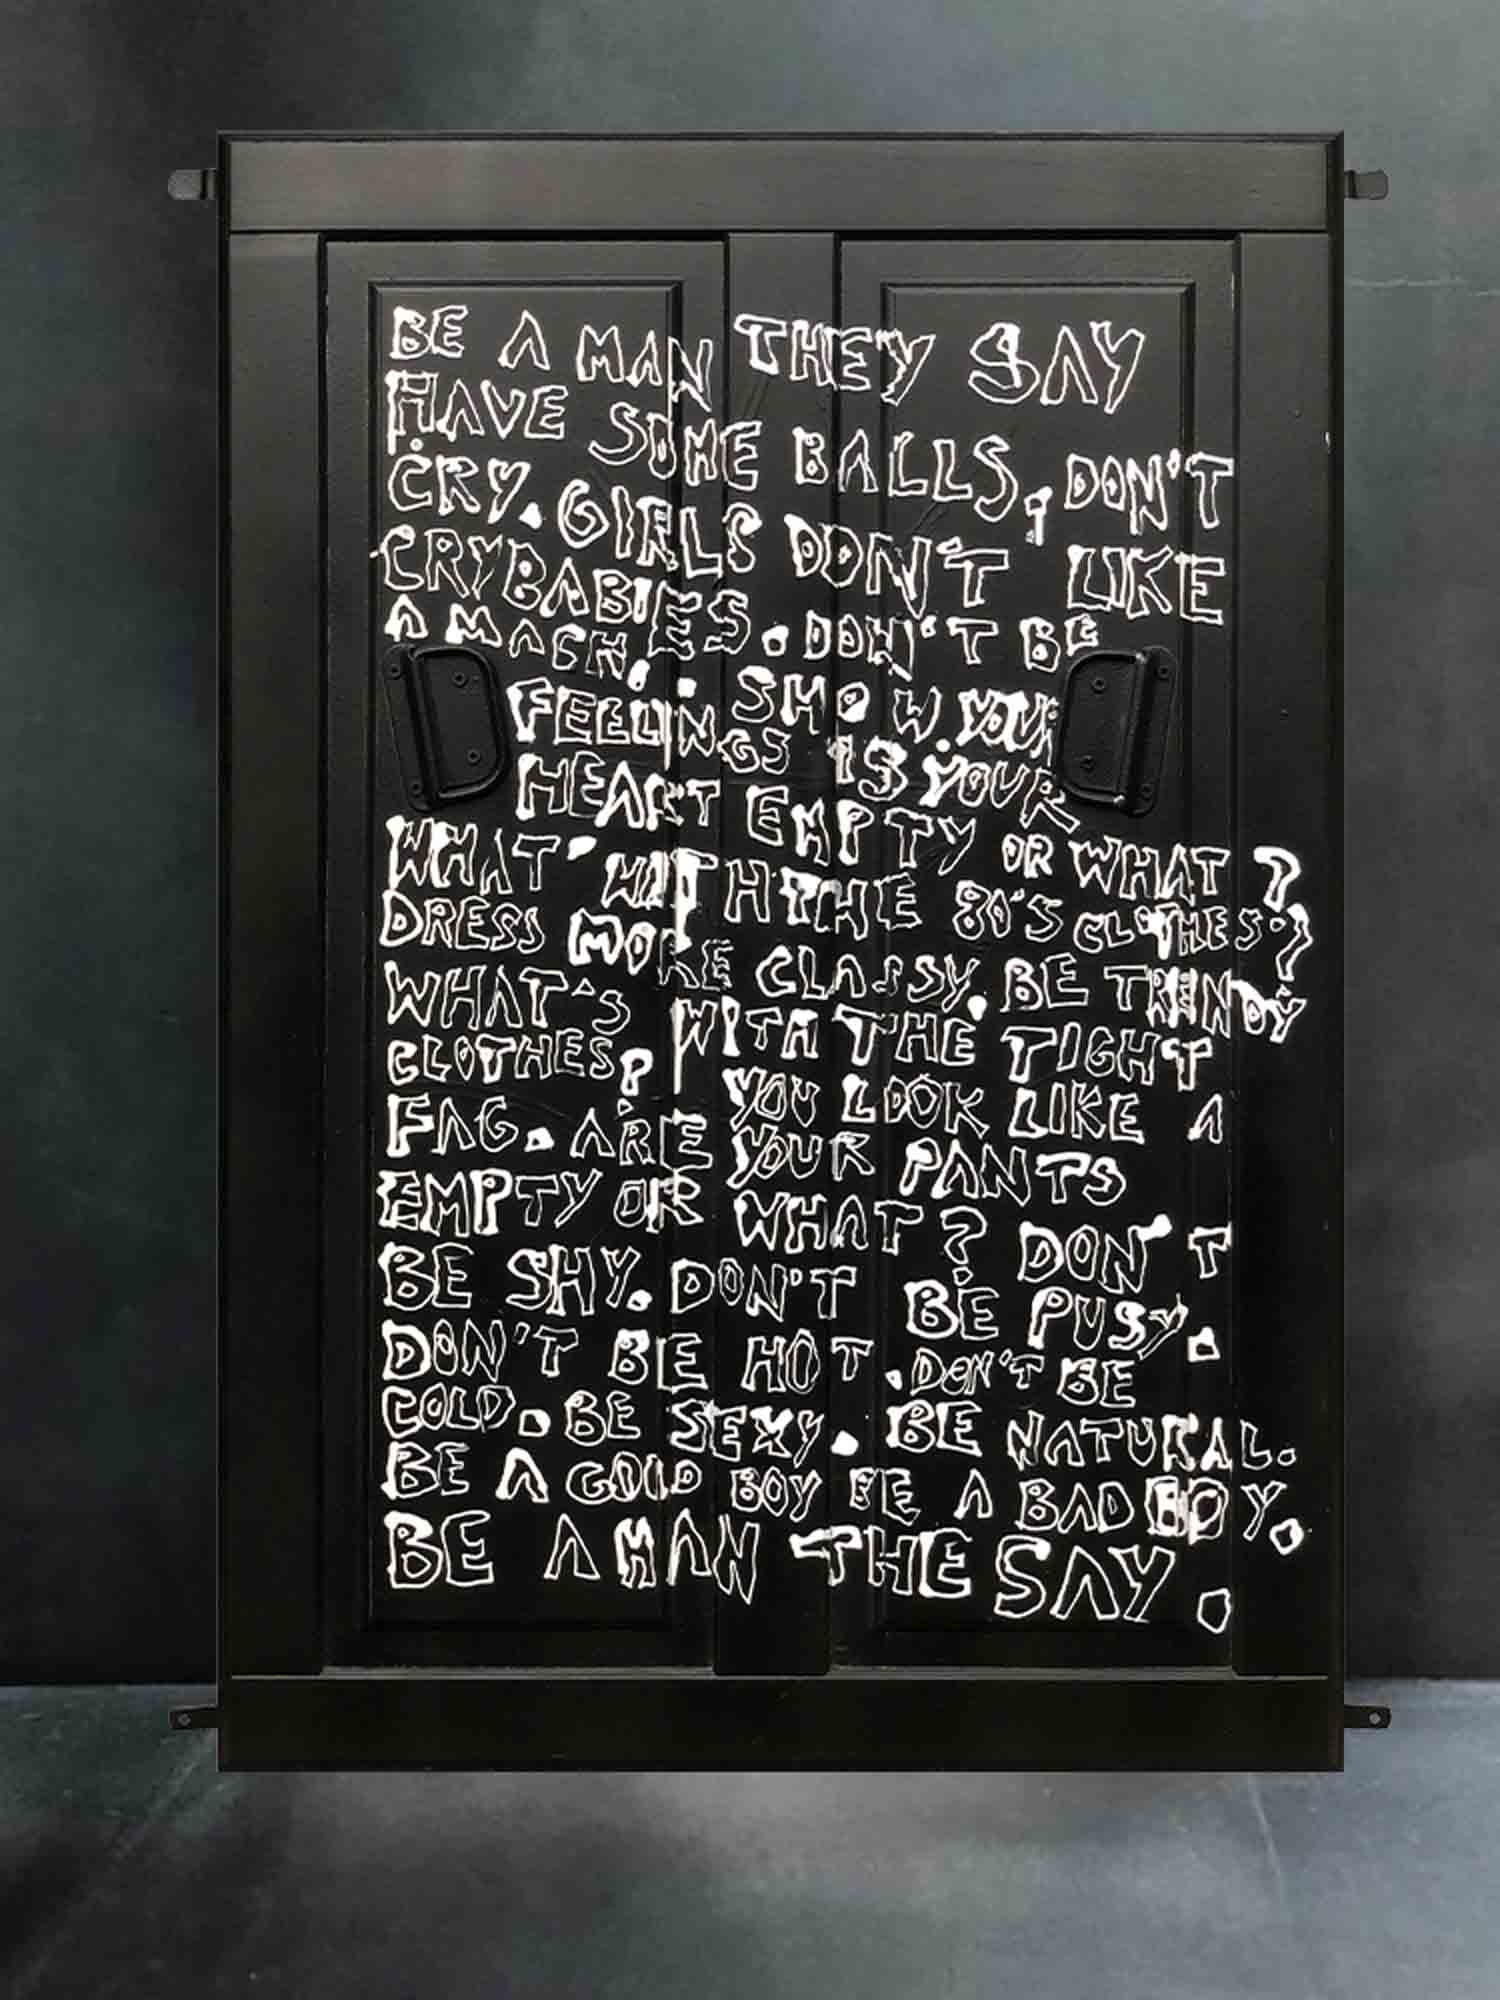 BE A MAN THEY SAY
HAVE SOME BALLS, DON'T
CRY. GIRLS DON'T LIKE
CRYBABIES. DON'T BE
A MACH. SHOW YOUR
FEELINGS IS YOUR
HEART EMPTY OR WHAT?
WHAT' WITH THE 80'S CLOTHES?
DRESS MORE CLASSY. BE TRENDY
WHAT'S WITH THE TIGHT
CLOTHES? YOU LOOK LIKE A
FAG. ARE YOUR PANTS
EMPTY OR WHAT? DON'T
BE SHY. DON'T BE PUSY.
DON'T BE HOT. DON'T BE
COLD. BE SEXY. BE NATURAL.
BE A GOOD BOY BE A BAD BOY.
BE A MAN THE SAY.